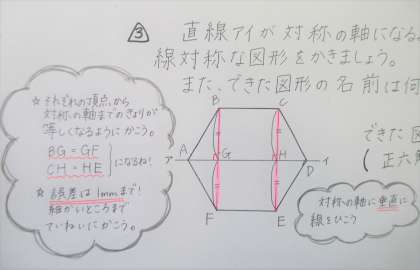 3 直線アイが対称の軸になる
線対称な図形をかきましょう。
また、できた図形の名前は何
☆それぞれの頂点から
対称の軸までのきょりが
等しくなるようにかこう。
BG=GF
CH=HE
になるね!
☆誤差は1mmまで!
細かいところまで
ていねいにかこう。
B C
ア A G H D イ
F E
できた図
(正六角
対称の軸に垂直に
線をひこう